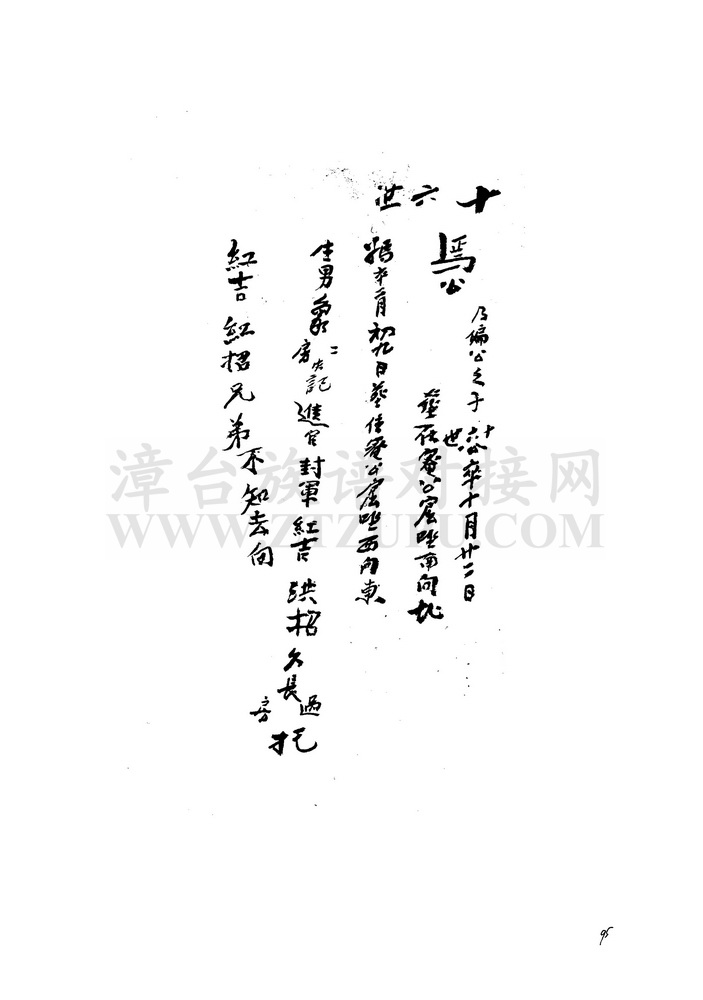 十六世
焉公
乃偏公之子 十六世 卒十月廿二日
葬在蜜公窟坐南向北
卒二月初九日葬在蜜公窟坐西向東
生男 二房 記進官封軍紅吉洪招 長房过
紅吉紅招兄弟不知去向
漳台族谱对接网
WWW.ZTZUPU.COM
95